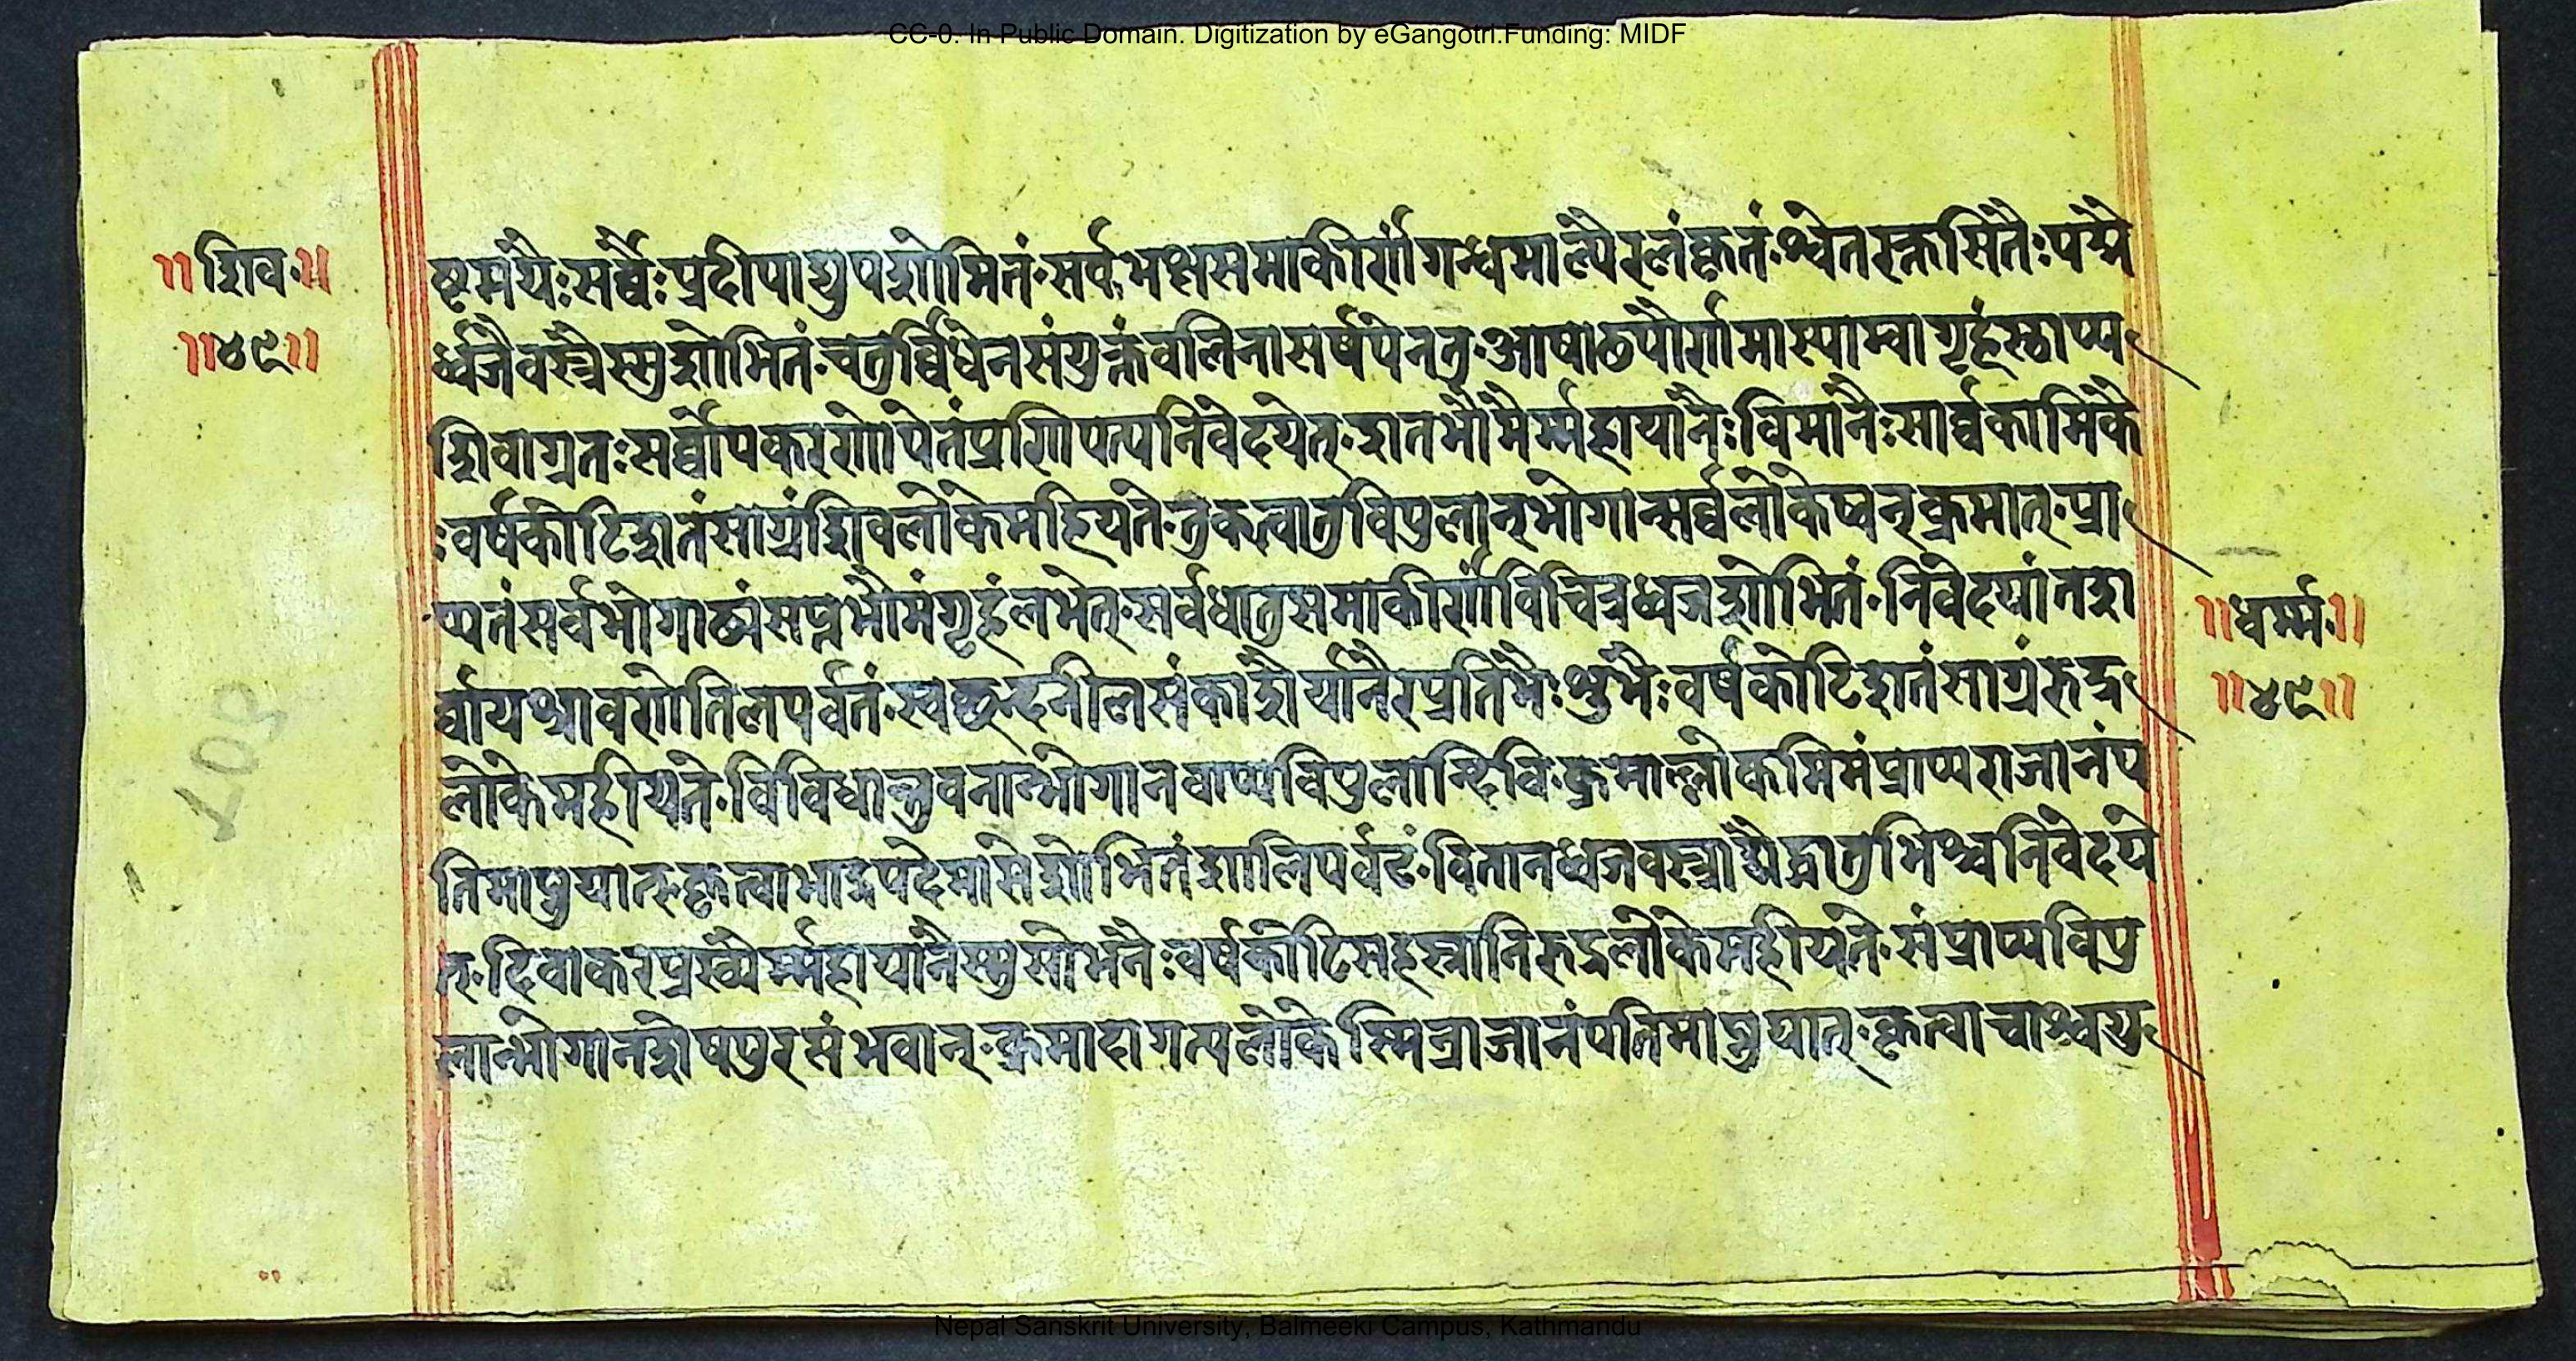 CC-0. In Public Domain. Digitization by eGangotri.Funding: MIDF
॥शिव॰॥
॥४९॥
ष्टमयैःसर्वैःप्रदीपाद्युपशोभितं॰सर्वभक्षसमाकीर्णंगन्धमाल्यैरलंकृतं॰श्वेतरक्तसितैःपद्मै
र्ध्वजैवस्त्रैस्सुशोभितं॰चतुर्व्विधेनसंयुक्तंवलिनासर्षपेनतु॰आषाढपौर्णमास्याम्वागृहंस्थाप्य
शिवाग्रतःसर्व्वोपकरणोपेतंप्रणिपत्यनिवेदयेत्॰शतभौमैर्म्महायानैःविमानैःसार्व्वकामिकै
ःवर्षकोटिशतंसाग्रंशिवलोकेमहियते॰तुकत्वातुविपुलान्भोगान्सर्व्वलोकेष्वनुक्रमात्॰प्रा
प्यतंसर्वभोगाढ्यंसप्तभौमंगृहंलभेत्॰सर्वधातुसमाकीर्णंविचित्रध्वजशोभितं॰निवेदयांतश
र्वायश्रावणेतिलपर्वतं॰स्वछन्दनीलसंकाशैर्यानैरप्रतिमैःशुभैःवर्षकोटिशतंसाग्रंरुद्र
लोकेमहीयते॰विविधान्भुवनान्भोगानवाप्यविपुलान्दिवि॰क्रमाल्लोकमिमंप्राप्यराजानंप
तिमाप्नुयात्॰कृत्वाभाद्रपदेमासेशोभितंशालिपर्वतं॰वितानध्वजवस्त्राद्यैर्द्धातुभिश्चनिवेदये
त्॰दिवाकरप्रख्यैर्म्महायानैस्सुसोभनैःवर्षकोटिसहस्त्रानिरुद्रलोकेमहीयते॰संप्राप्यविपु
लान्भोगानशेषपुरसंभवान्॰क्रमादागत्यलोकेस्मिन्राजानंपतिमाप्नुयात्॰कृत्वाचाश्वयु
॥धर्म्म॰॥
॥४९॥
Nepal Sanskrit University, Balmeeki Campus, Kathmandu